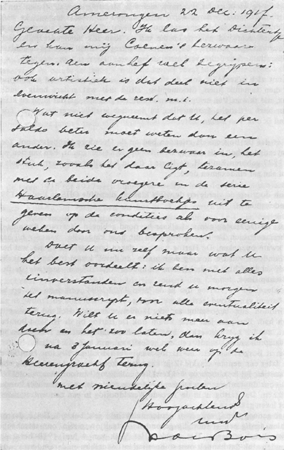 Amerongen 22 Dec. 1917
Geachte Heer. Ik las het Dichtertje
en kan mij Coenen's bezwaar
tegen den aanhef best begrijpen:
ook artistiek is dat deel niet in
evenwicht met de rest, m.i.
Wat niet wegneemt dat U, het per
saldo beter moet weten dan een
ander. Ik zie er geen bezwaar in, het
stuk, zooals het daar ligt, tezamen
met de beide vroegere in de serie
uit te
geven op de condities als voor eenige
weken door ons besproken.
Doet U nu zelf maar wat U
het best oordeelt: ik ben met alles
eenverstanden en zend U morgen
het manuscript, voor alle eventualiteit
terug. Wilt U er niets meer aan
doen en het zoo laten, dan krijg ik
na 3 Januari wel weer op de
Heerengracht terug.
met vriendelijke groeten
Hoogachtend